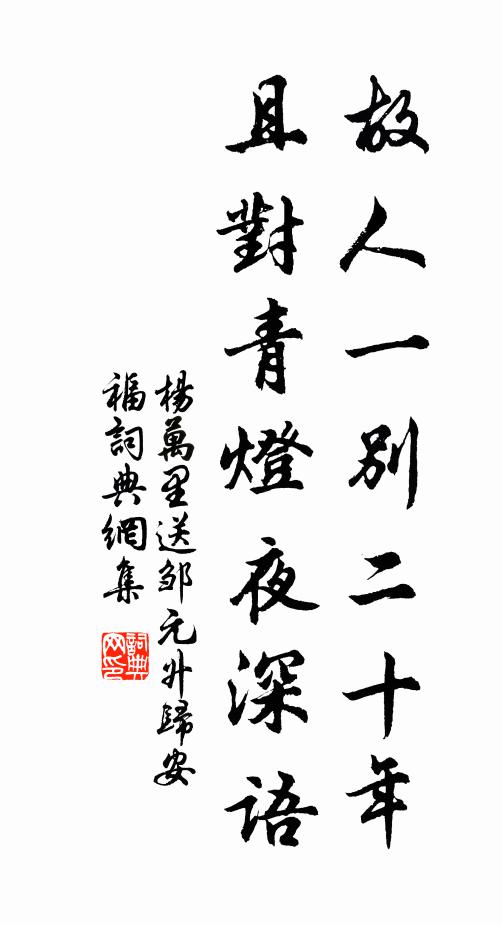 故人一别二十年
且對青燈夜深语
楊萬里送邹元升歸安
福詞典網集
詞典网印